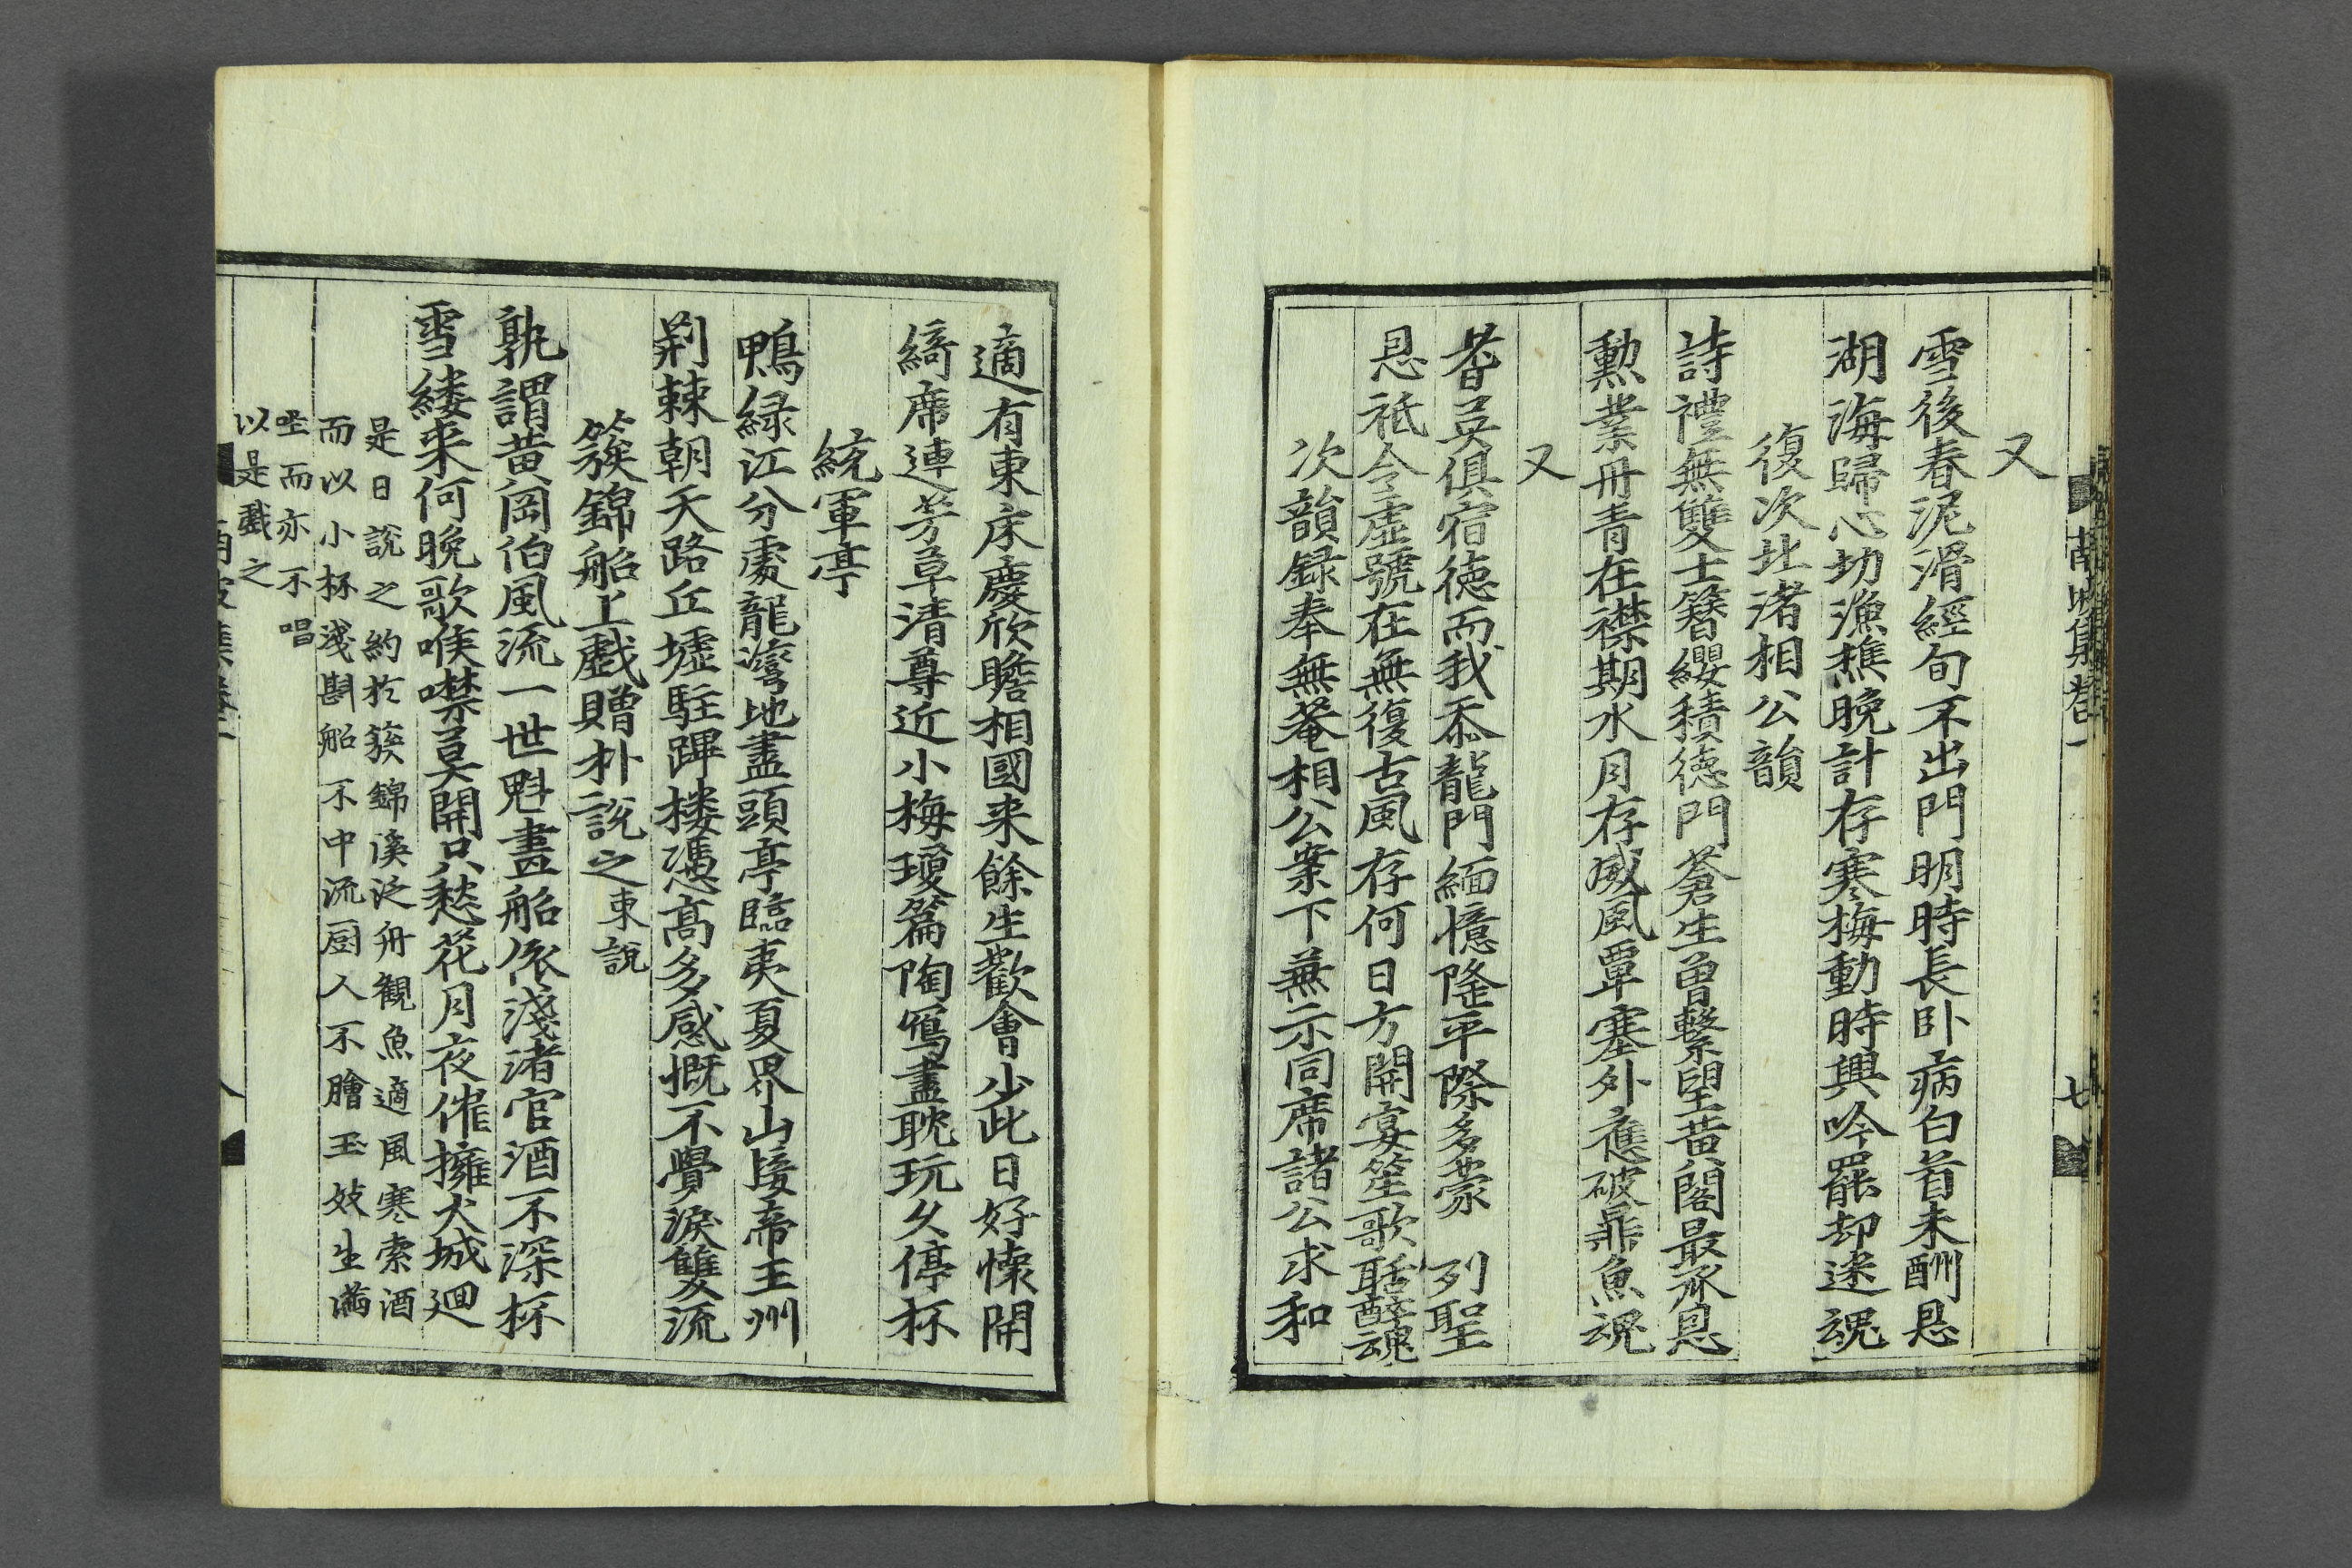 又
雪後春泥滑經旬不出門明時長卧病白首未酬恩
湖海歸心切漁樵晚計存寒梅動時興吟罷却迷魂
復次北渚相公韻
詩禮無雙士簪纓積德門蒼生曾繫望黃閣最承恩
勲業丹青在襟期水月存威風覃塞外應破㬥魚魂
又
耆英俱宿德而我忝龍門緬憶隆平際多蒙 列聖
恩祗令虛號在無復古風存何日方開宴笙歌聒醉魂
次韻録奉無菴相公案下兼示同席諸公求和
適有東床慶欣瞻相國来餘生歡會少此日好懷開
綺席連芳草清尊近小梅瓊篇陶寫盡耽玩久停杯
統軍亭
鴨緑江分處龍灣地盡頭亭臨夷夏界山接帝王州
荊棘朝天路丘墟駐蹕樓憑高多感慨不覺淚雙流
簇錦船上戲贈朴說之東說
孰謂黃岡伯風流一世魁畫船依淺渚官酒不深杯
雪縷来何晚歌喉噤莫開只愁花月夜催擁犬城廻
是日說之約於簇錦溪泛舟觀魚適風寒索酒
而以小杯淺斟船不中流厨人不膾玉妓生滿
坐而亦不唱
以是戲之